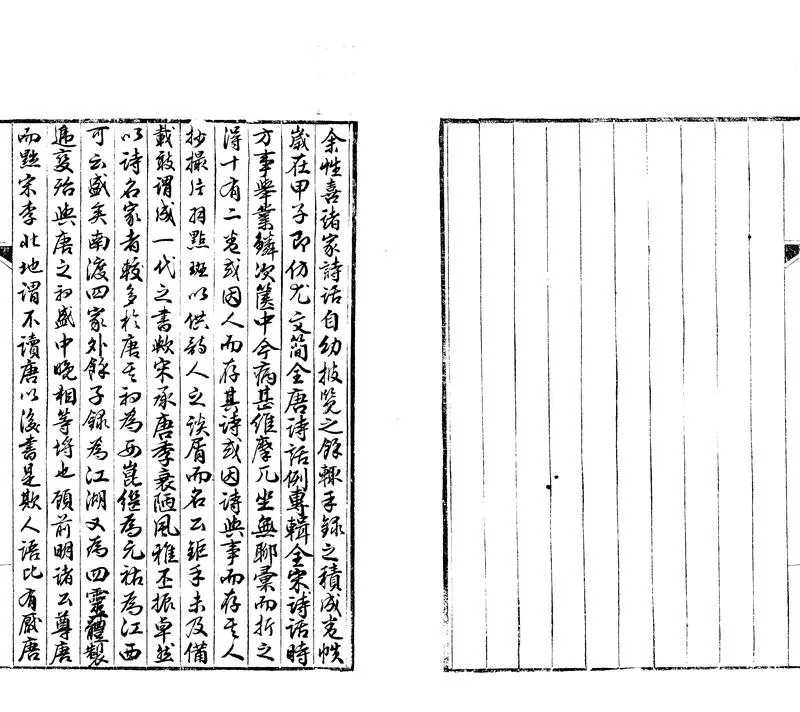 余性喜諸家詩話自幼披覽之餘輒手録之積成卷帙
歲在甲子即仿尤文簡全唐詩話例專輯全宋詩話時
方事舉業鱗次篋中今病甚維摩兀坐無聊彙而折之
得十有二卷或因人而存其詩或因詩與事而存其人
抄撮片羽點斑以供韵人之談屑而名公鉅手未及備
載敢謂成一代之書歟宋承唐季衰陋風雅丕振卓然
以詩名家者較多於唐其初為西崑繼為元祐為江西
可云盛矣南渡四家外餘子録為江湖又為四靈體製
遞變殆與唐之初盛中晚相等埒也顧前明諸公尊唐
而黜宋李北地謂不讀唐以後書是欺人語比有厭唐